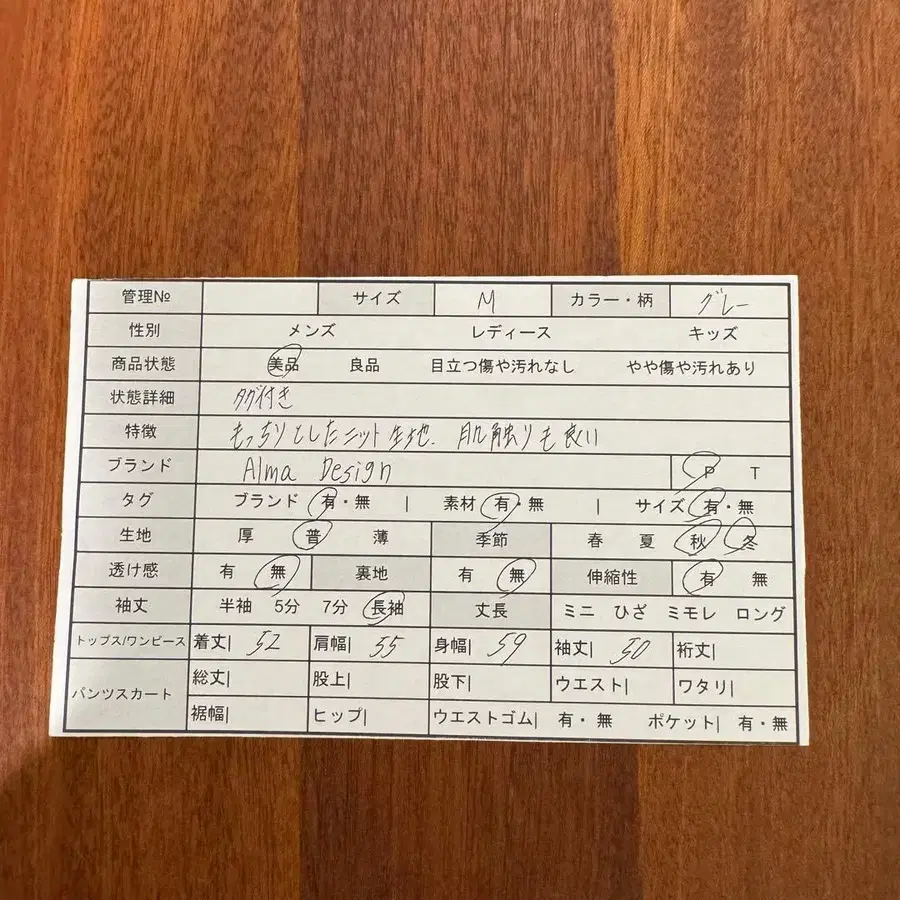 管理№ サイズ M カラー・柄 グレー
性別 メンズ レディース キッズ
商品状態 美品 良品 目立つ傷や汚れなし やや傷や汚れあり
状態詳細 タグ付き
特徴 もっちりとしたニット生地. 肌触りも良い
ブランド Alma Design P T
タグ ブランド 有・無 | 素材 有・無 | サイズ 有・無
生地 厚 普 薄 季節 春 夏 秋 冬
透け感 有 無 裏地 有 無 伸縮性 有 無
袖丈 半袖 5分 7分 長袖 丈長 ミニ ひざ ミモレ ロング
トップス/ワンピース 着丈| 52 肩幅| 55 身幅| 59 袖丈| 50 裄丈|
パンツスカート 総丈| 股上| 股下| ウエスト| ワタリ|
裾幅| ヒップ| ウエストゴム| 有・無 ポケット| 有・無